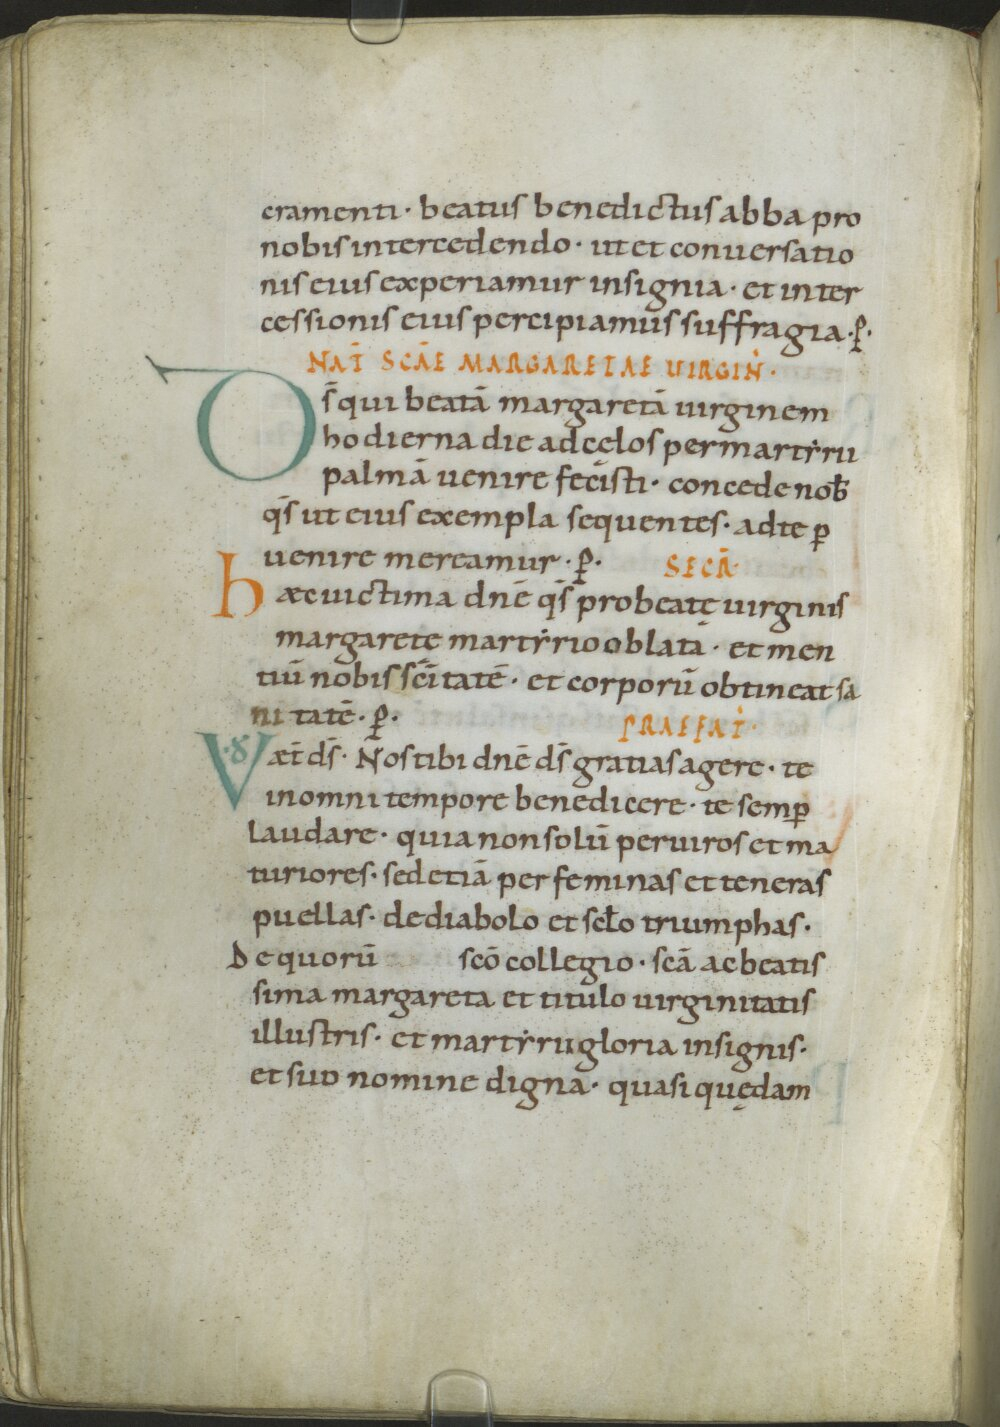 cramenti· beatus benedictus abba pro
nobis intercedendo· ut et conuersatio
nis eius experiamur insignia· et inter
cessionis eius percipiamus suffragia·ꝑ·
NAT̄ SCĀE MARGARETAE UIRGIN̄·
D̄s qui beatā margaretā uirginem
hodierna die ad cęlos per martẏrii
palmā uenire fecisti· concede nob̄
q̄s ut eius exempla sequentes· ad te ꝑ
uenire mereamur·ꝑ· SECR̄
haec uictima dnē q̄s pro beatę uirginis
margaretę martẏrio oblata· et men
tiū nobis sc̄itatē· et corporū obtineat sa
nitatē·ꝑ· PRAEFAT̄·
V·D· aet̄ ds̄· Nos tibi dnē ds̄ gratias agere· te
in omni tempore benedicere· te semꝑ
laudare· quia non solū per uiros et ma
turiores· sed etiā per feminas et teneras
puellas· de diabolo et scl̄o triumphas·
De quorū scō collegio· scā ac beatis
sima margareta et titulo uirginitatis
illustris· et martẏrii gloria insignis·
et suo nomine digna· quasi quędam